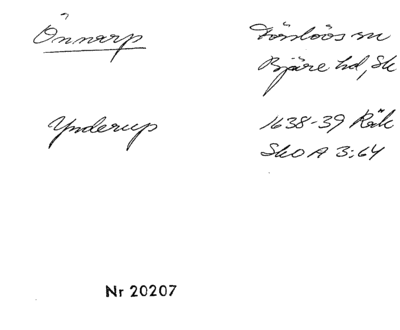 Önnarp
Förslövs sn
Bjäre hd, Sk
Ynderup
1638-39 Räk
SkO A 3:64
Nr 20207